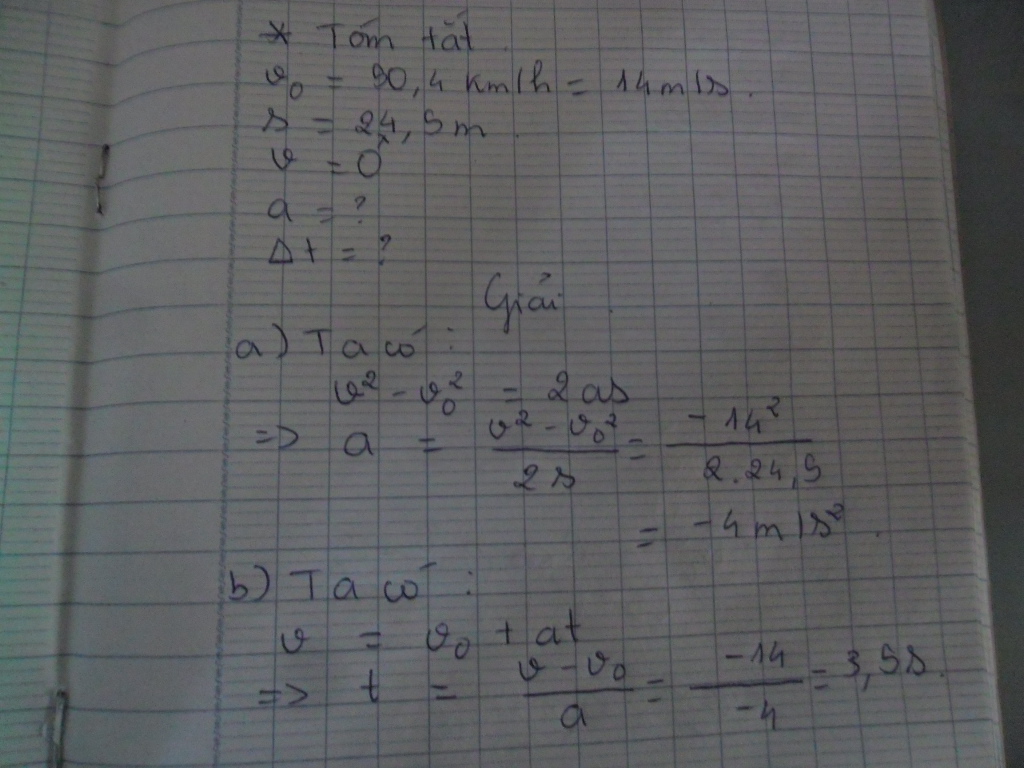 * Tóm tắt.
v₀ = 50,4 km/h = 14 m/s.
s = 24,5 m.
v = 0
a = ?
Δt = ?
Giải
a) Ta có :
v² - v₀² = 2as
=> a = (v² - v₀²)/(2s) = (-14²)/(2.24,5)
= -4 m/s².
b) Ta có :
v = v₀ + at
=> t = (v - v₀)/a = (-14)/(-4) = 3,5s.